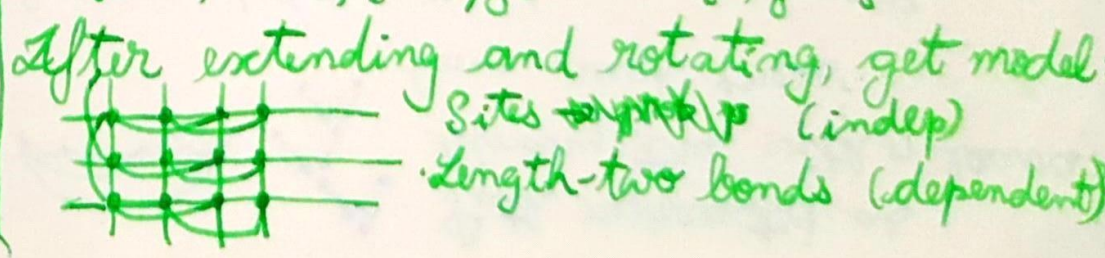 After extending and rotating, get model
Sites (indep)
Length-two bonds (dependent)